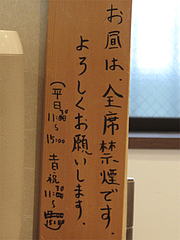 お昼は、全席禁煙です。
よろしくお願いします。
(平日 11:00〜15:00 土日祝 11:00〜